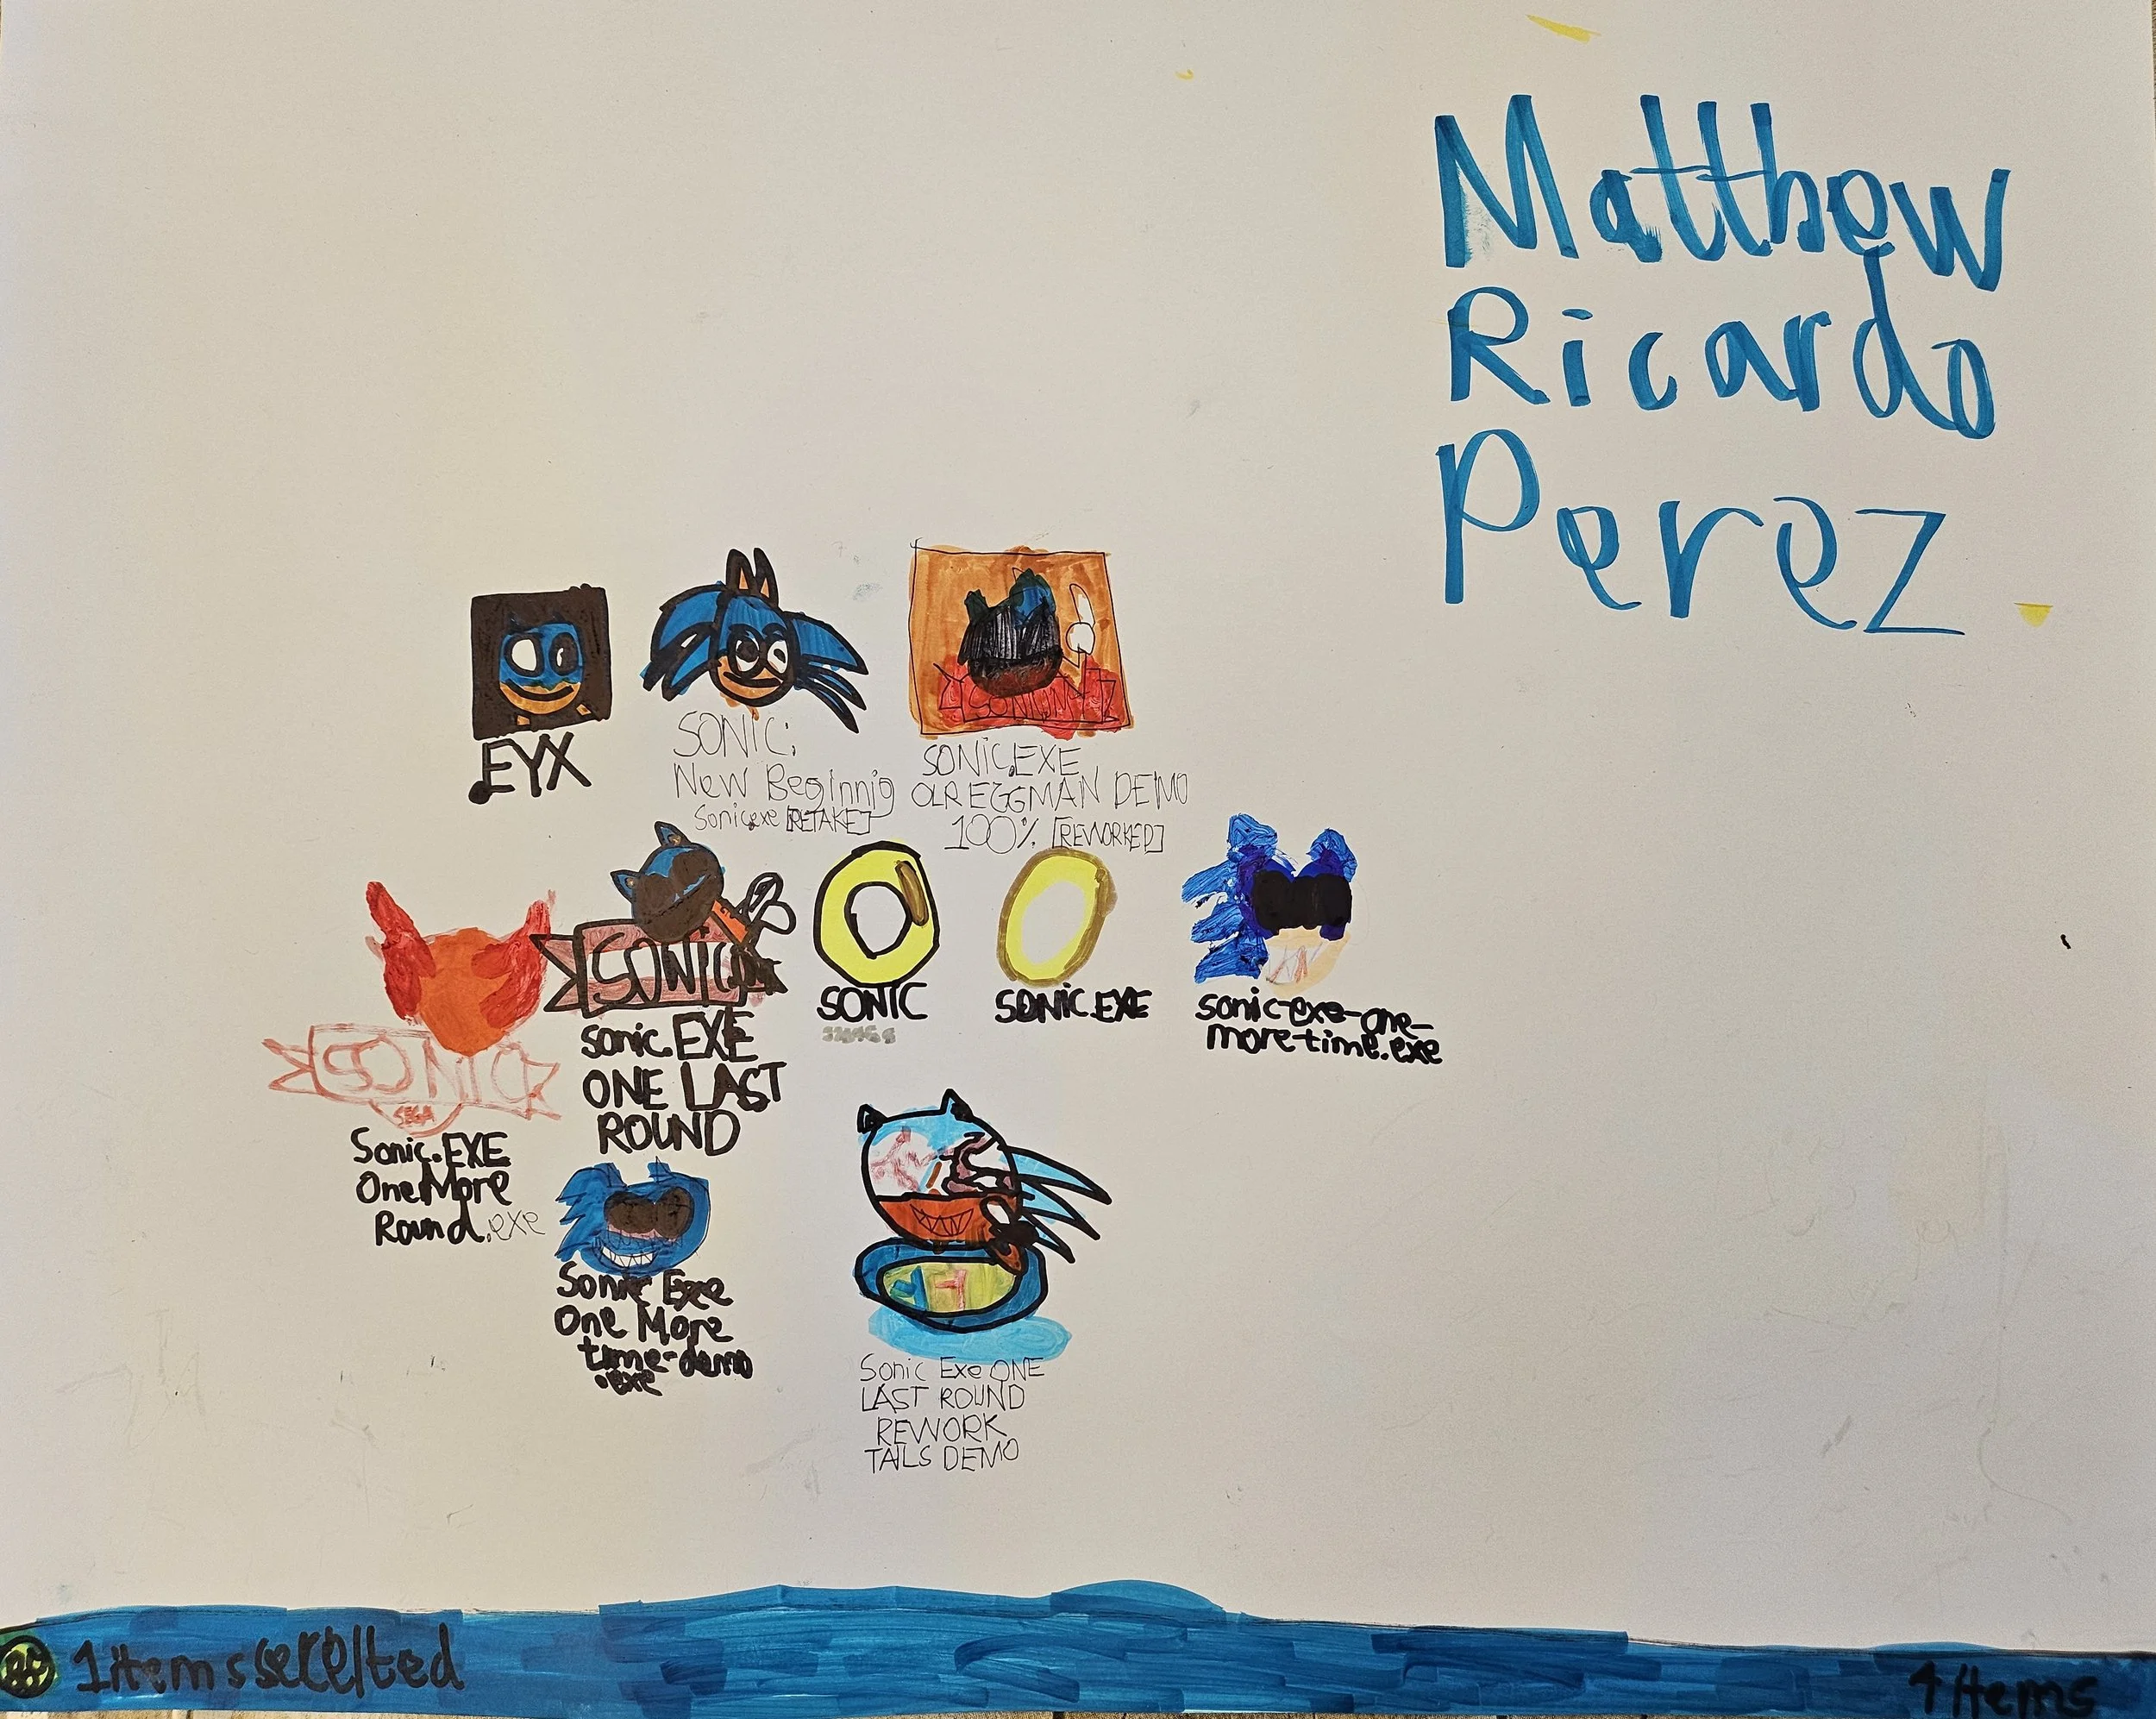 Matthew
Ricardo
Perez
EYX
SONIC:
New Beginnig
Sonic.exe [RETAKE]
SONIC.EXE
OLR EGGMAN DEMO
100% [REWORKED]
SONIC
SEGA
Sonic.EXE
One More
Round.exe
SONIC
sonic.EXE
ONE LAST
ROUND
SONIC
SONIC.EXE
sonic-exe-one-
more-time.exe
Sonic Exe
One More
time-demo
.exe
Sonic Exe ONE
LAST ROUND
REWORK
TAILS DEMO
1items
4 items